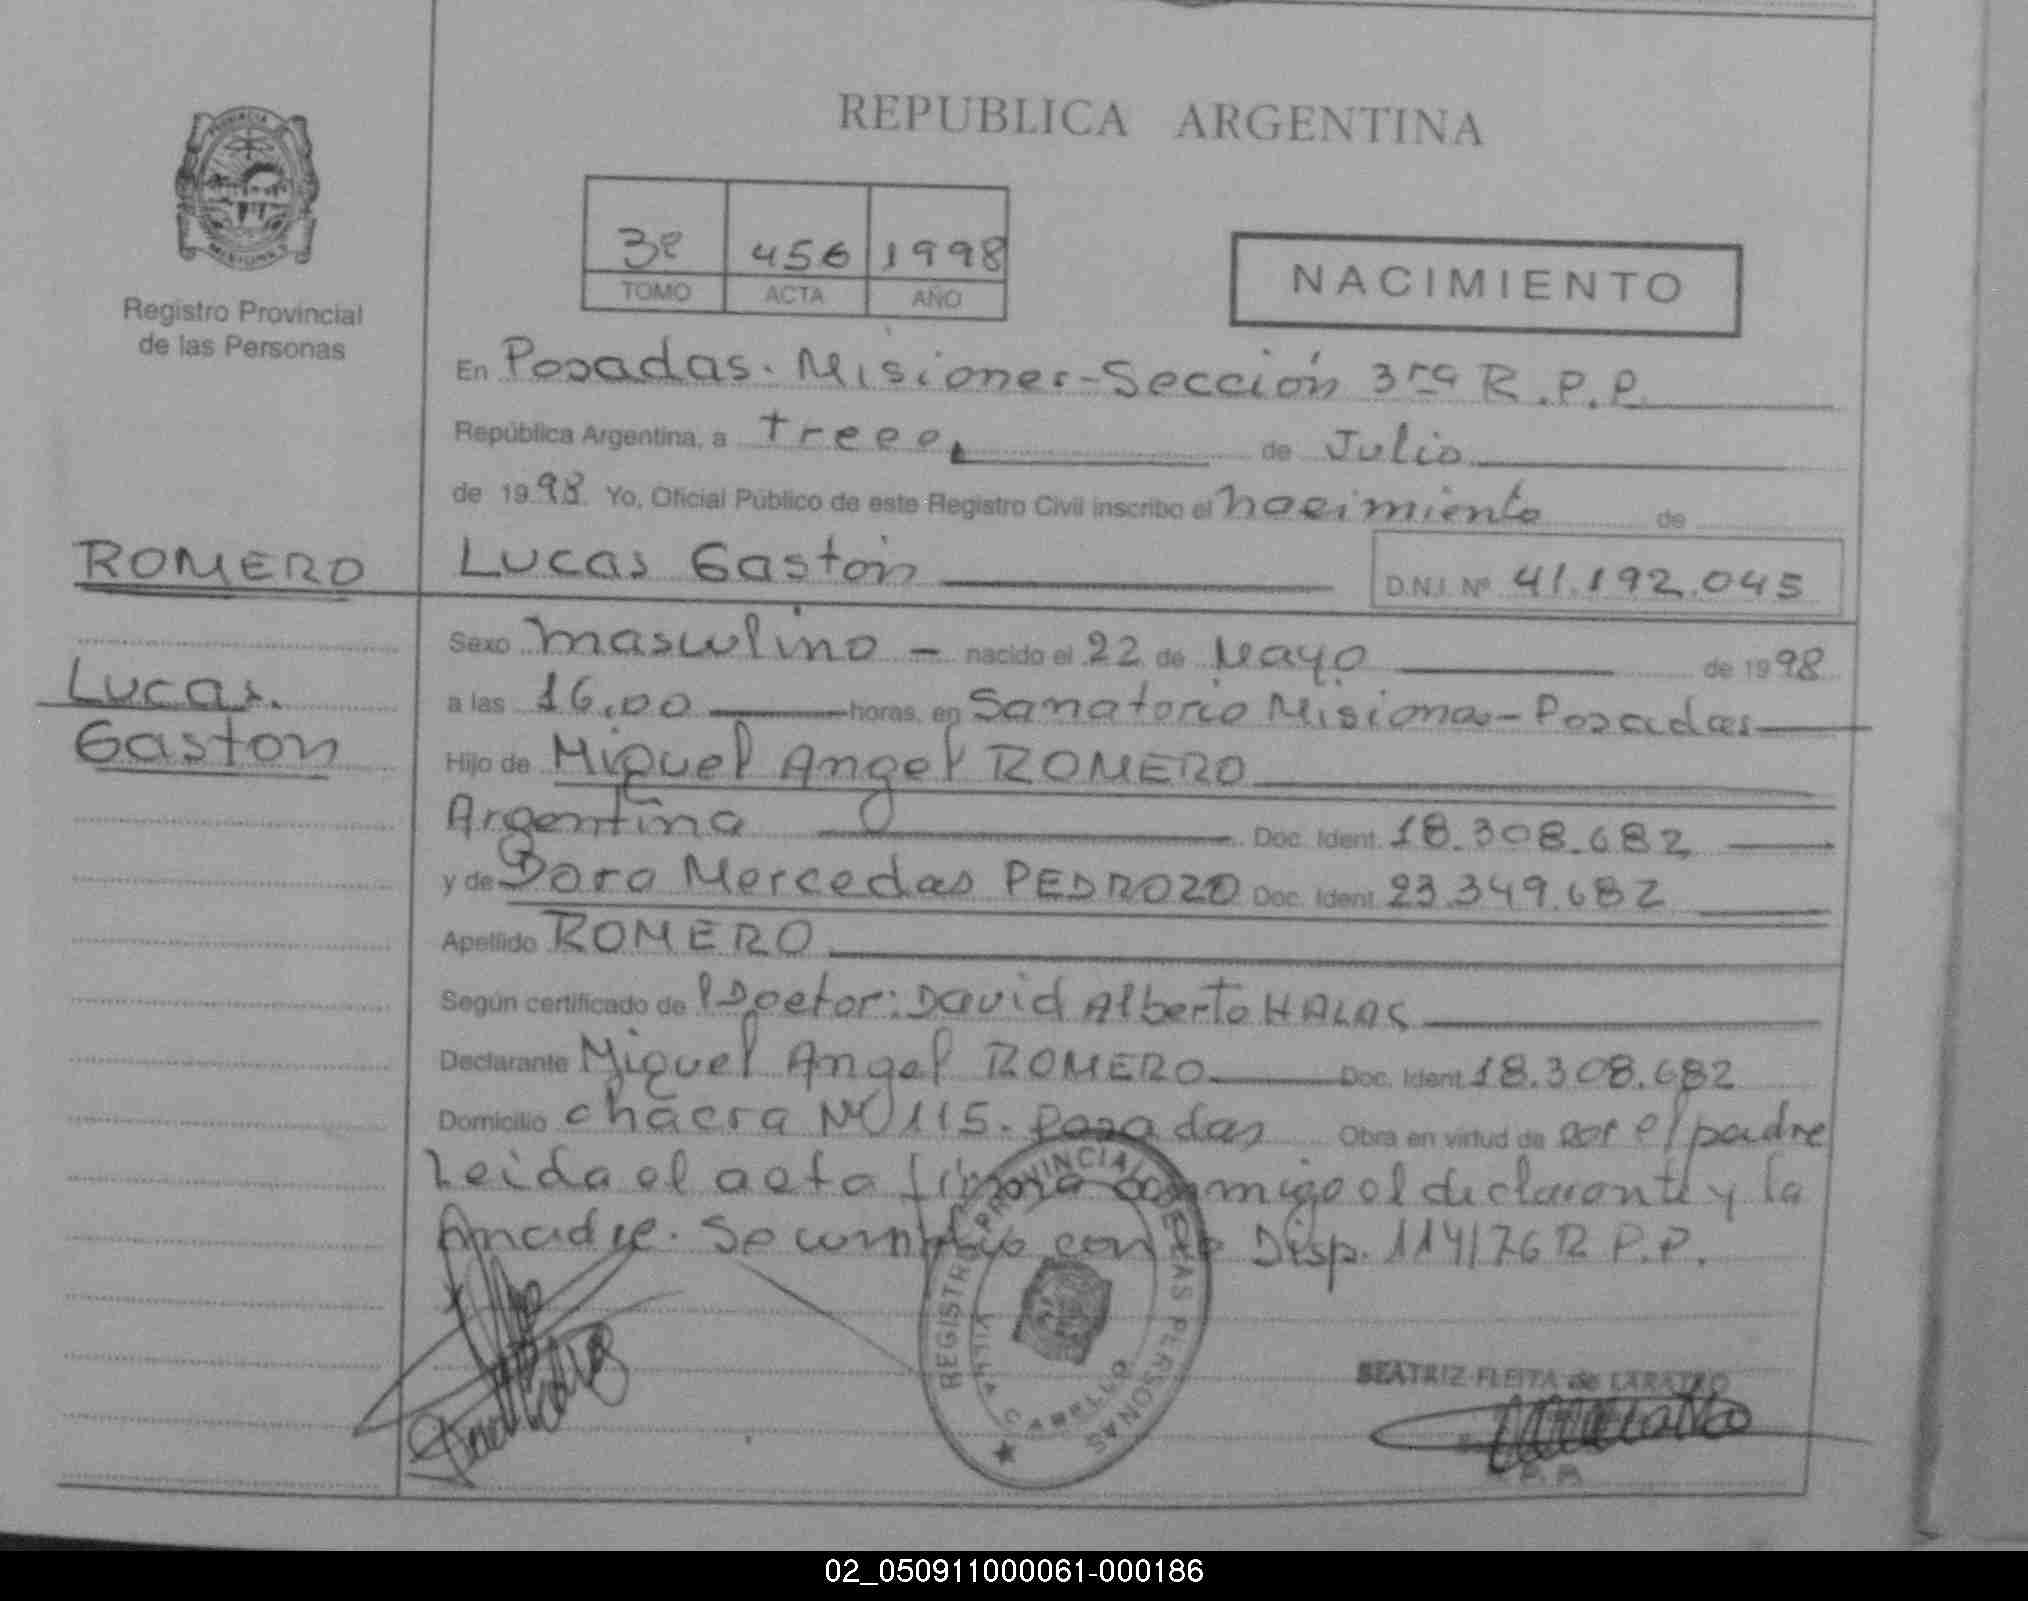 REPUBLICA ARGENTINA
3º 456 1998
TOMO ACTA AÑO
NACIMIENTO
Registro Provincial
de las Personas
En Posadas. Misiones-Sección 3ra R.P.P.
República Argentina, a trece, de Julio
de 1998 Yo, Oficial Público de este Registro Civil inscribo el nacimiento de
ROMERO
Lucas Gastón D.N.I. Nº 41.192.045
Sexo masculino - nacido el 22 de Mayo de 1998
Lucas
Gaston
a las 16,00 horas, en Sanatorio Misiones-Posadas
Hijo de Miguel Angel ROMERO
Argentina Doc. Ident. 18.308.682
y de Dora Mercedas PEDROZO Doc. Ident. 23.349.682
Apellido ROMERO
Según certificado de Doctor: David Alberto HALAS
Declarante Miguel Angel ROMERO Doc. Ident. 18.308.682
Domicilio chacra Nº 115. Posadas Obra en virtud de ser el padre
Leida el acta firma conmigo el declarante y la
madre. Se cumplio con Disp. 114/76 R.P.P.
REGISTRO PROVINCIAL DE LAS PERSONAS
VILLA CABELLO
BEATRIZ FLEITA de LARATRO
02_050911000061-000186